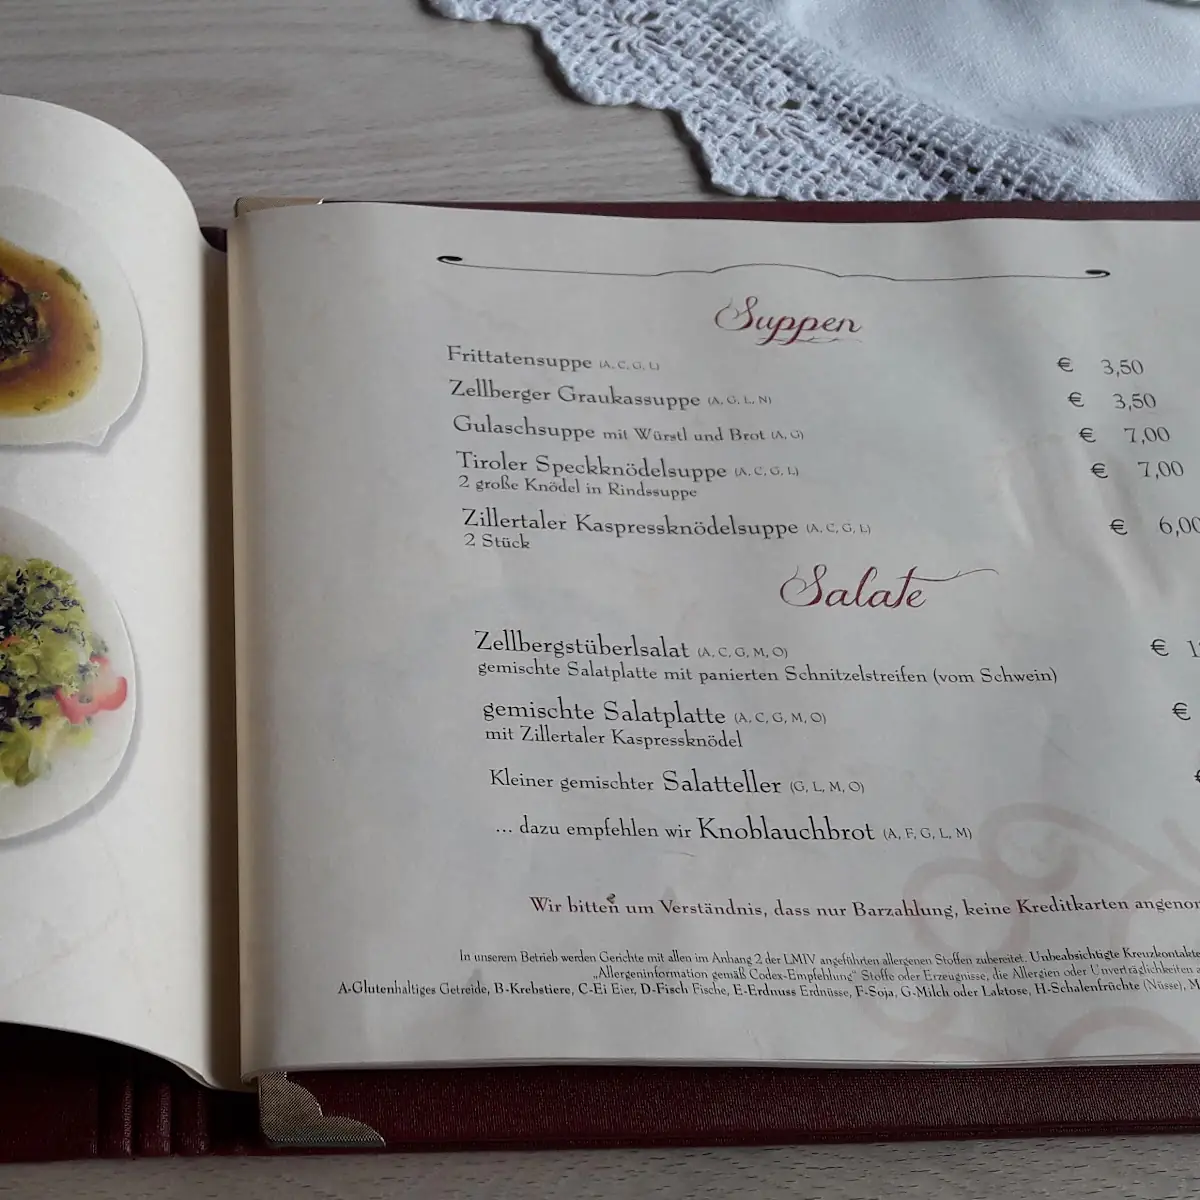 Suppen
Frittatensuppe (A, C, G, L) € 3,50
Zellberger Graukassuppe (A, G, L, N) € 3,50
Gulaschsuppe mit Würstl und Brot (A, G) € 7,00
Tiroler Speckknödelsuppe (A, C, G, L) € 7,00
2 große Knödel in Rindssuppe
Zillertaler Kaspressknödelsuppe (A, C, G, L) € 6,00
2 Stück
Salate
Zellbergstüberlsalat (A, C, G, M, O) €
gemischte Salatplatte mit panierten Schnitzelstreifen (vom Schwein)
gemischte Salatplatte (A, C, G, M, O) €
mit Zillertaler Kaspressknödel
Kleiner gemischter Salatteller (G, L, M, O) €
... dazu empfehlen wir Knoblauchbrot (A, F, G, L, M)
Wir bitten um Verständnis, dass nur Barzahlung, keine Kreditkarten
In unserem Betrieb werden Gerichte mit allen im Anhang 2 der LMIV angeführten allergenen Stoffen zubereitet. Unbeabsichtigte
„Allergeninformation gemäß Codex-Empfehlung" Stoffe oder Erzeugnisse, die Allergien oder Unverträglichkeiten
A-Glutenhaltiges Getreide, B-Krebstiere, C-Ei Eier, D-Fisch Fische, E-Erdnuss Erdnüsse, F-Soja, G-Milch oder Laktose, H-Schalenfrüchte (Nüsse),